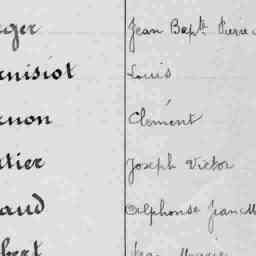 ger Jean Bapt. Pierre
rnisiot Louis
rnon Clément
rtier Joseph Victor
aud Alphonse Jean M
bert Jean Marie